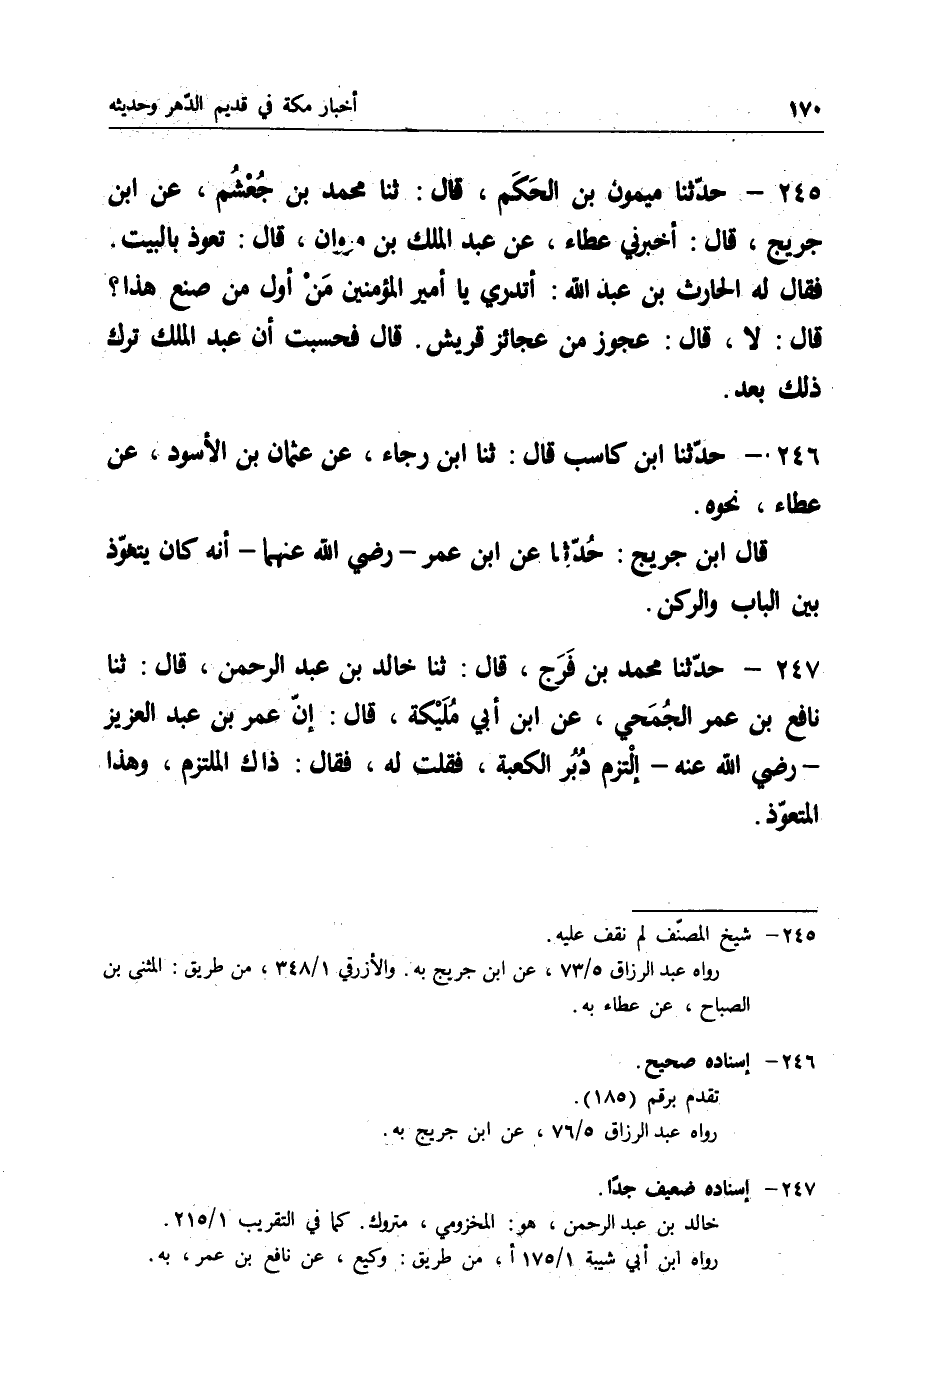 ١٧٠ أخبار مكة في قديم الدّهر وحديثه
٢٤٥ – حدّثنا ميمون بن الحَكَم ، قال : ثنا محمد بن جُعْشُم ، عن ابن
جريج ، قال : أخبرني عطاء ، عن عبد الملك بن مروان ، قال : تعوذ بالبيت .
فقال له الحارث بن عبد الله : أتدري يا أمير المؤمنين مَنْ أول من صنع هذا ؟
قال : لا ، قال : عجوز من عجائز قريش . قال فحسبت أن عبد الملك ترك
ذلك بعد .
٢٤٦ – حدّثنا ابن كاسب قال : ثنا ابن رجاء ، عن عثمان بن الأسود ، عن
عطاء ، نحوه .
قال ابن جريج : حُدّثنا عن ابن عمر – رضي الله عنهما – أنه كان يتعوّذ
بين الباب والركن .
٢٤٧ – حدّثنا محمد بن فَرَج ، قال : ثنا خالد بن عبد الرحمن ، قال : ثنا
نافع بن عمر الجُمَحي ، عن ابن أبي مُلَيْكة ، قال : إنّ عمر بن عبد العزيز
– رضي الله عنه – إلْتزم دُبُر الكعبة ، فقلت له ، فقال : ذاك الملتزم ، وهذا
المتعوّذ .
٢٤٥ – شيخ المصنّف لم نقف عليه .
رواه عبد الرزاق ٧٣/٥ ، عن ابن جريج به . والأزرقي ٣٤٨/١ ، من طريق : المثنى بن
الصباح ، عن عطاء به .
٢٤٦ – إسناده صحيح .
تقدم برقم (١٨٥) .
رواه عبد الرزاق ٧٦/٥ ، عن ابن جريج به .
٢٤٧ – إسناده ضعيف جدًا .
خالد بن عبد الرحمن ، هو : المخزومي ، متروك . كما في التقريب ٢١٥/١ .
رواه ابن أبي شيبة ١٧٥/١ أ ، من طريق : وكيع ، عن نافع بن عمر ، به .